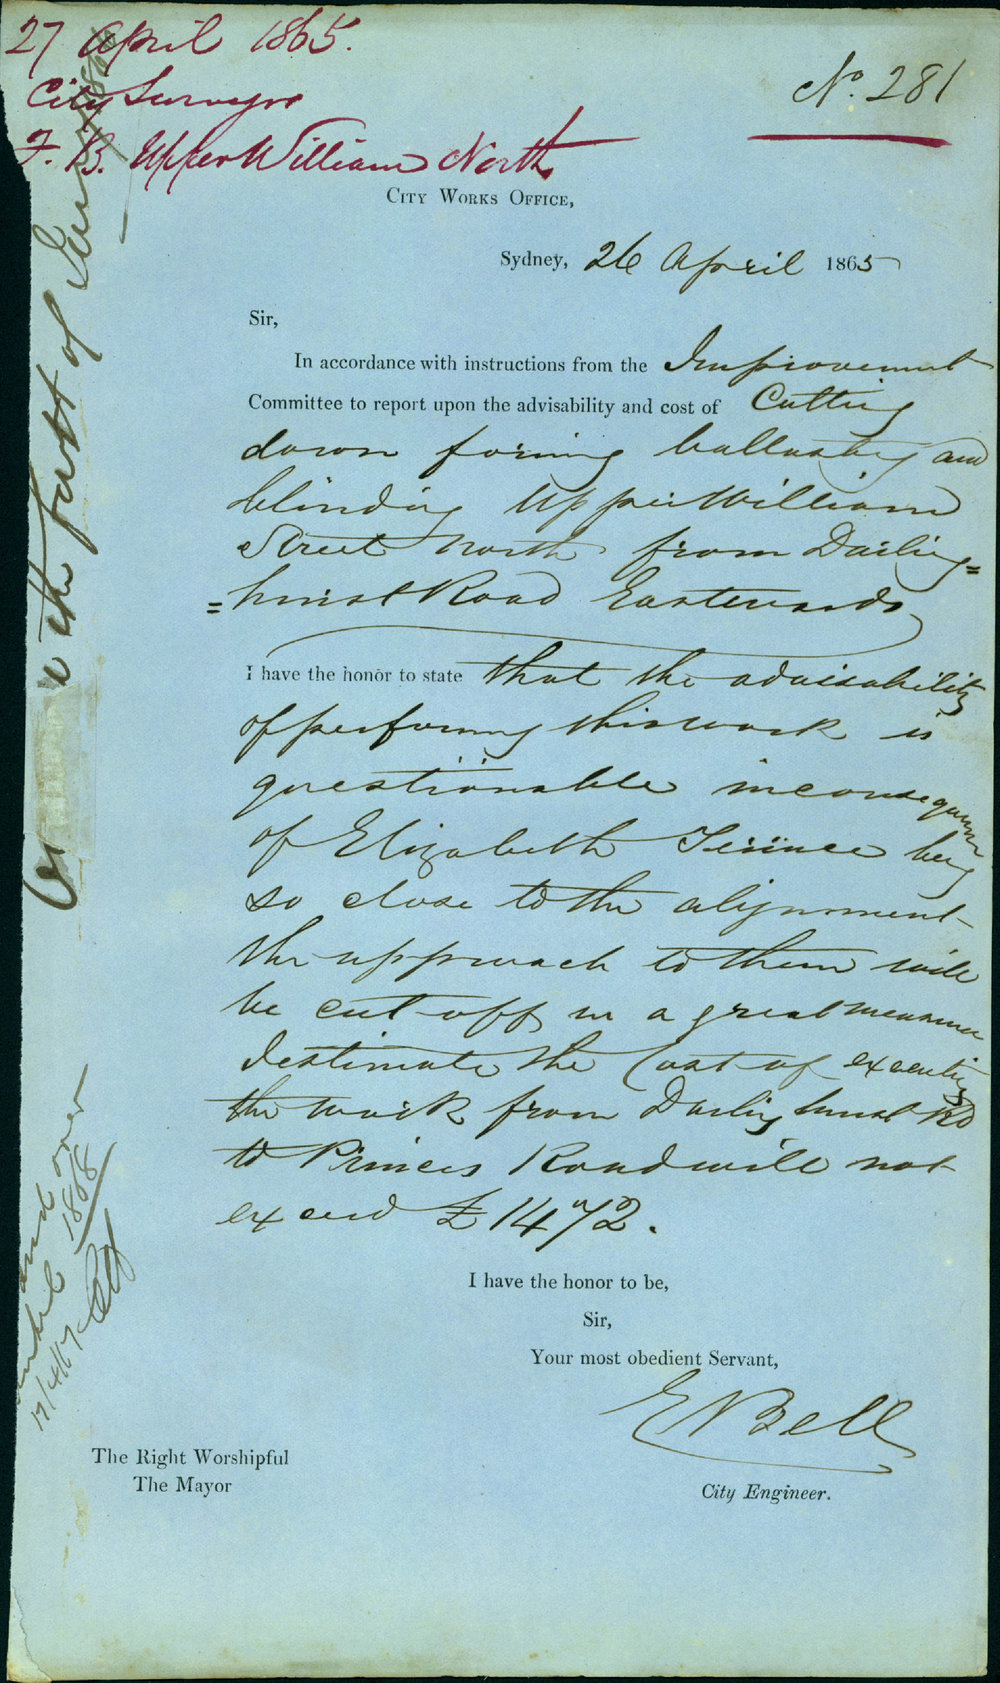 27 April 1865.
City Surveyor
F. B. Upper William North
No. 281
City Works Office,
Sydney, 26 April 1865
Sir,
In accordance with instructions from the Improvement
Committee to report upon the advisability and cost of Cutting
down forming ballasting and
blinding Upper William
Street North from Darling=
=hurst Road Eastwards
I have the honor to state that the advisability
of performing this work is
questionable in consequence
of Elizabeth Terrace being
so close to the alignment
the approach to them will
be cut off in a great measure
I estimate the Cost of executing
the work from Darlinghurst Rd
to Princes Road will not
exceed £1472.
I have the honor to be,
Sir,
Your most obedient Servant,
E Bell
City Engineer.
The Right Worshipful
The Mayor
the part of
and over
1866
17/4/67